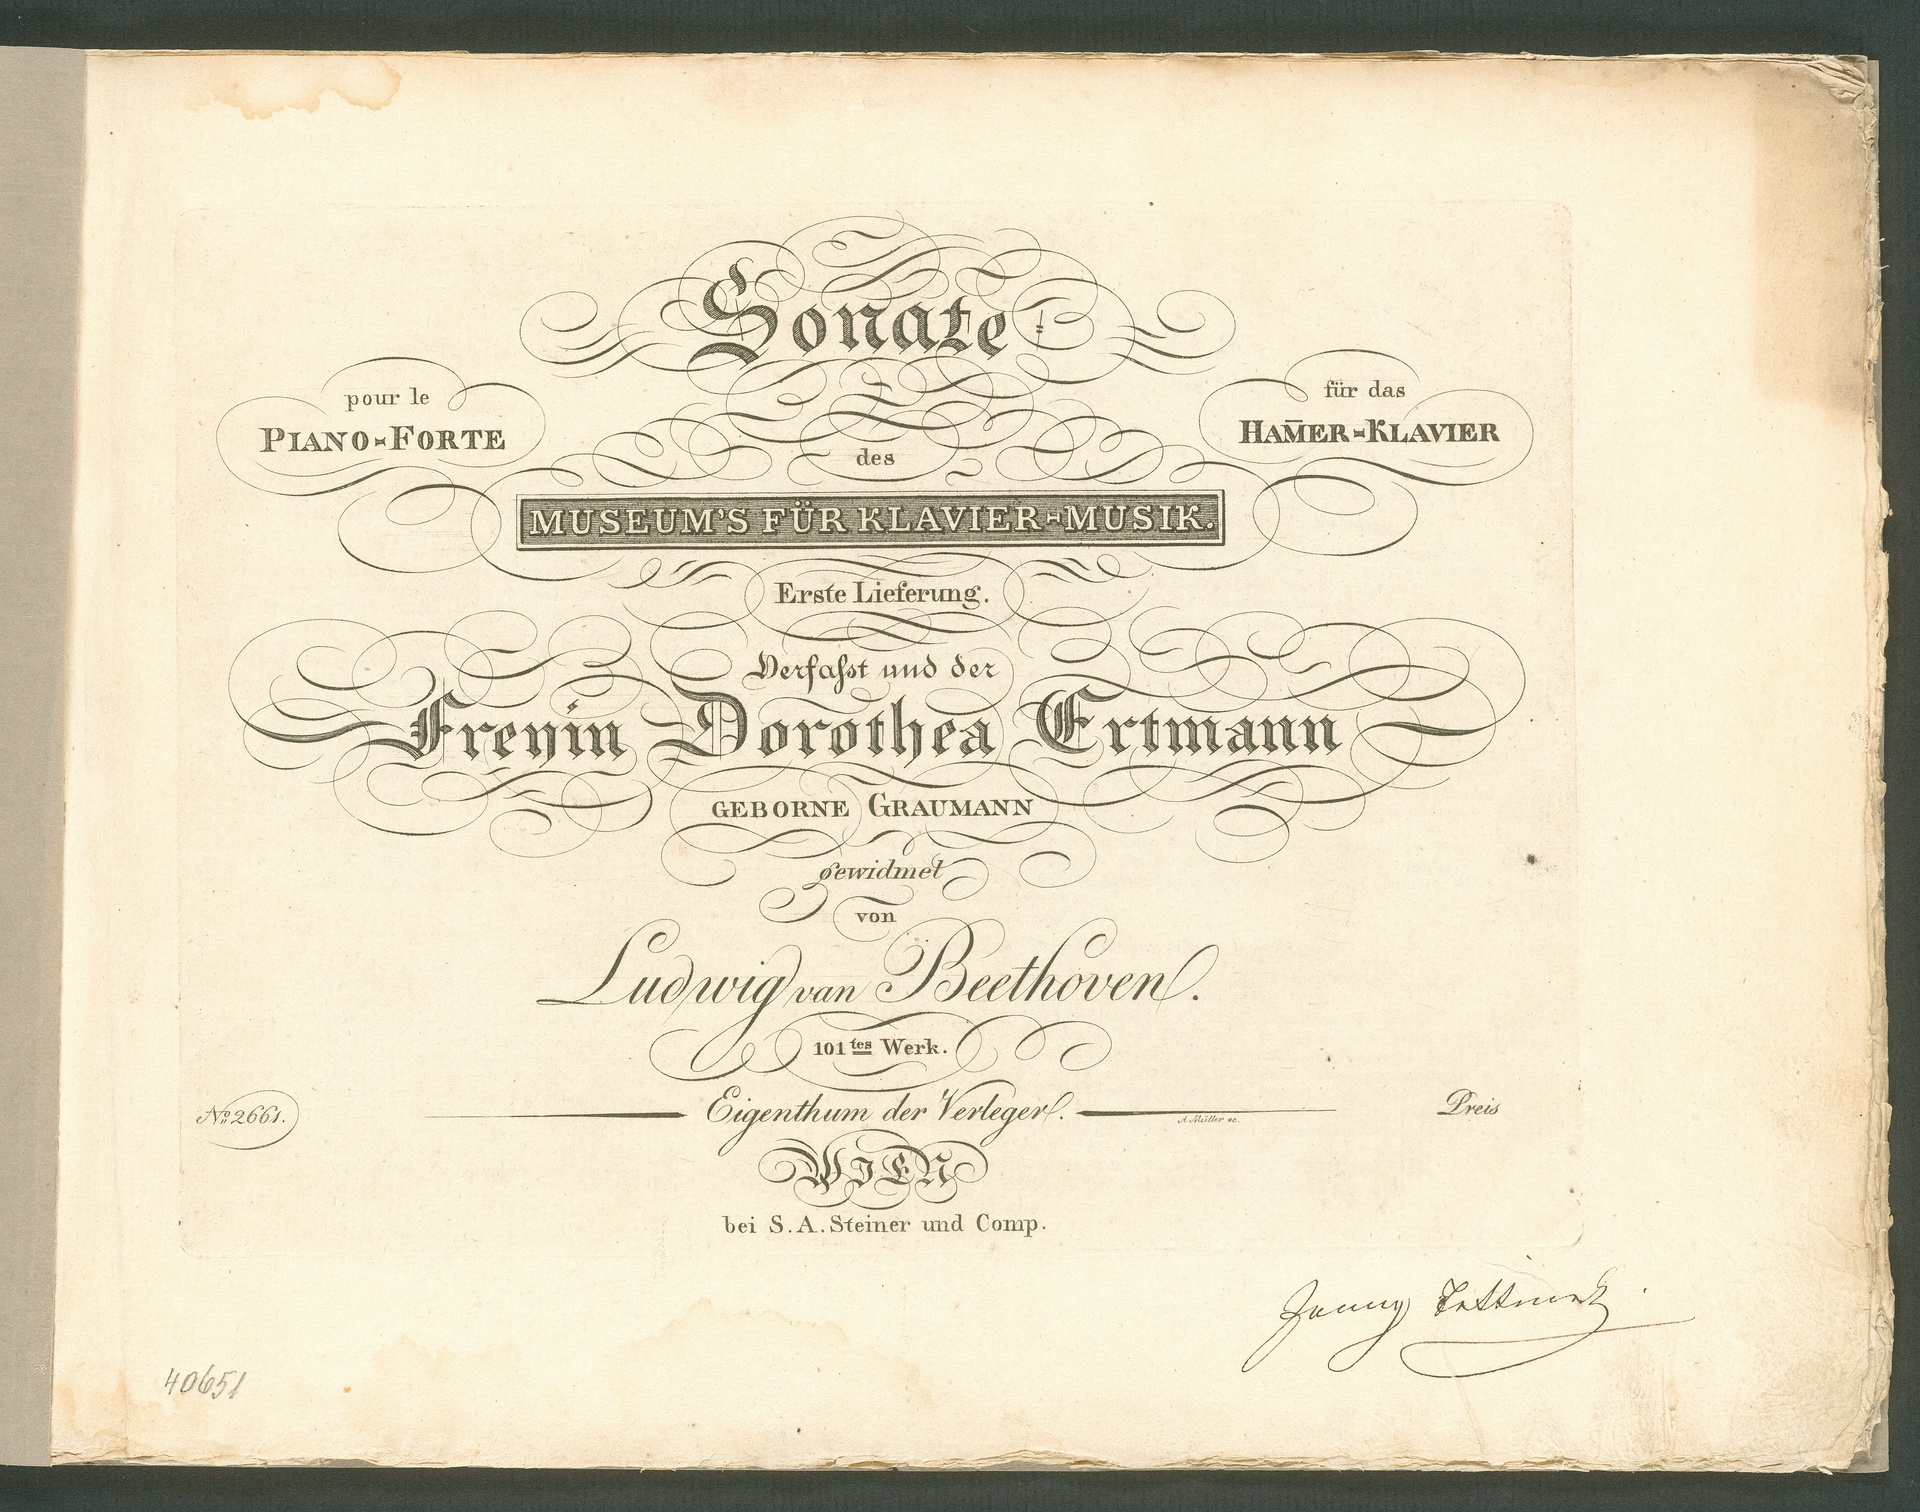 Sonate
pour le
PIANO-FORTE
für das
HAM̄ER-KLAVIER
des
MUSEUM'S FÜR KLAVIER-MUSIK.
Erste Lieferung.
Verfasst und der
Freyin Dorothea Ertmann
GEBORNE GRAUMANN
gewidmet
von
Ludwig van Beethoven.
101tes Werk.
No. 2661.
Eigenthum der Verleger.
A. Müller sc.
Preis
WIEN
bei S. A. Steiner und Comp.
40651